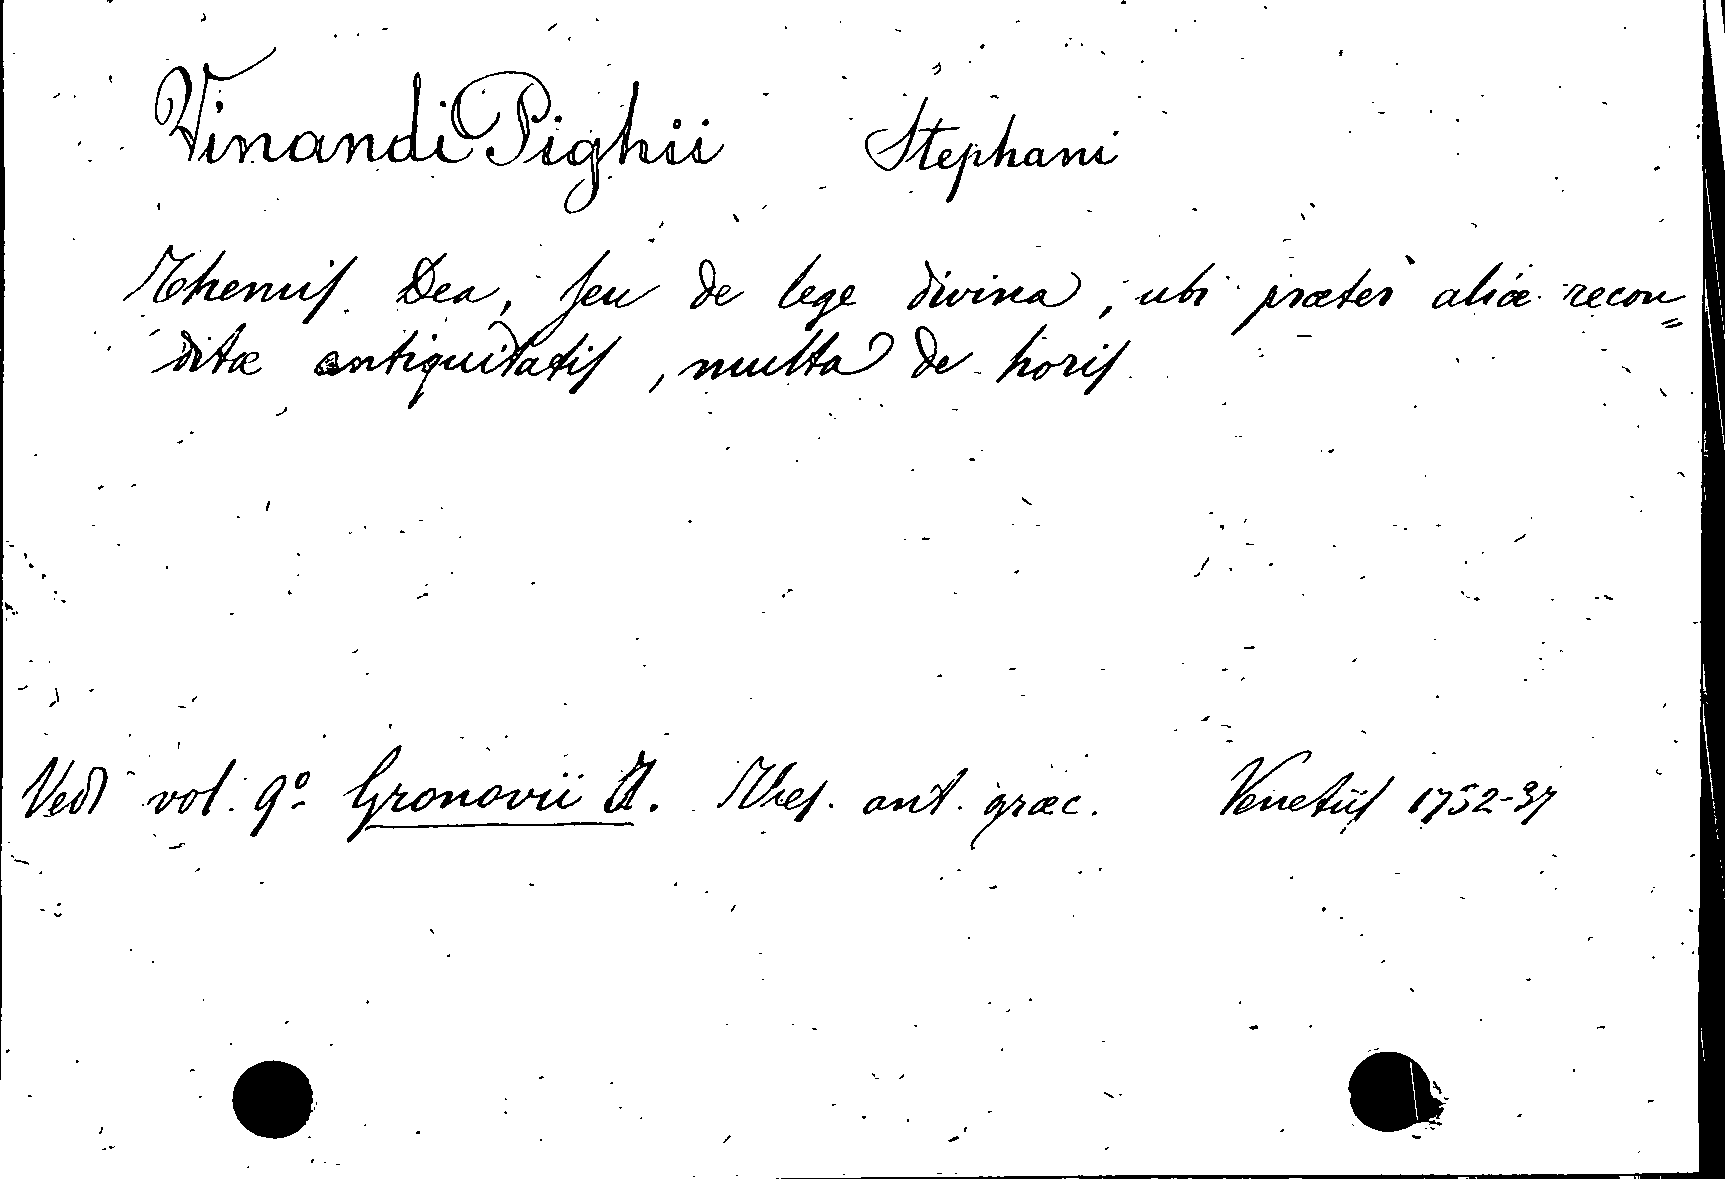 Vinandi Pighii Stephani
Themis Dea, seu de lege divina, ubi præter aliæ recon=
ditæ antiquitatis, multa de horis
Vedi vol. 9º Gronovii J. Thes. ant. græc. Venetiis 1732-37